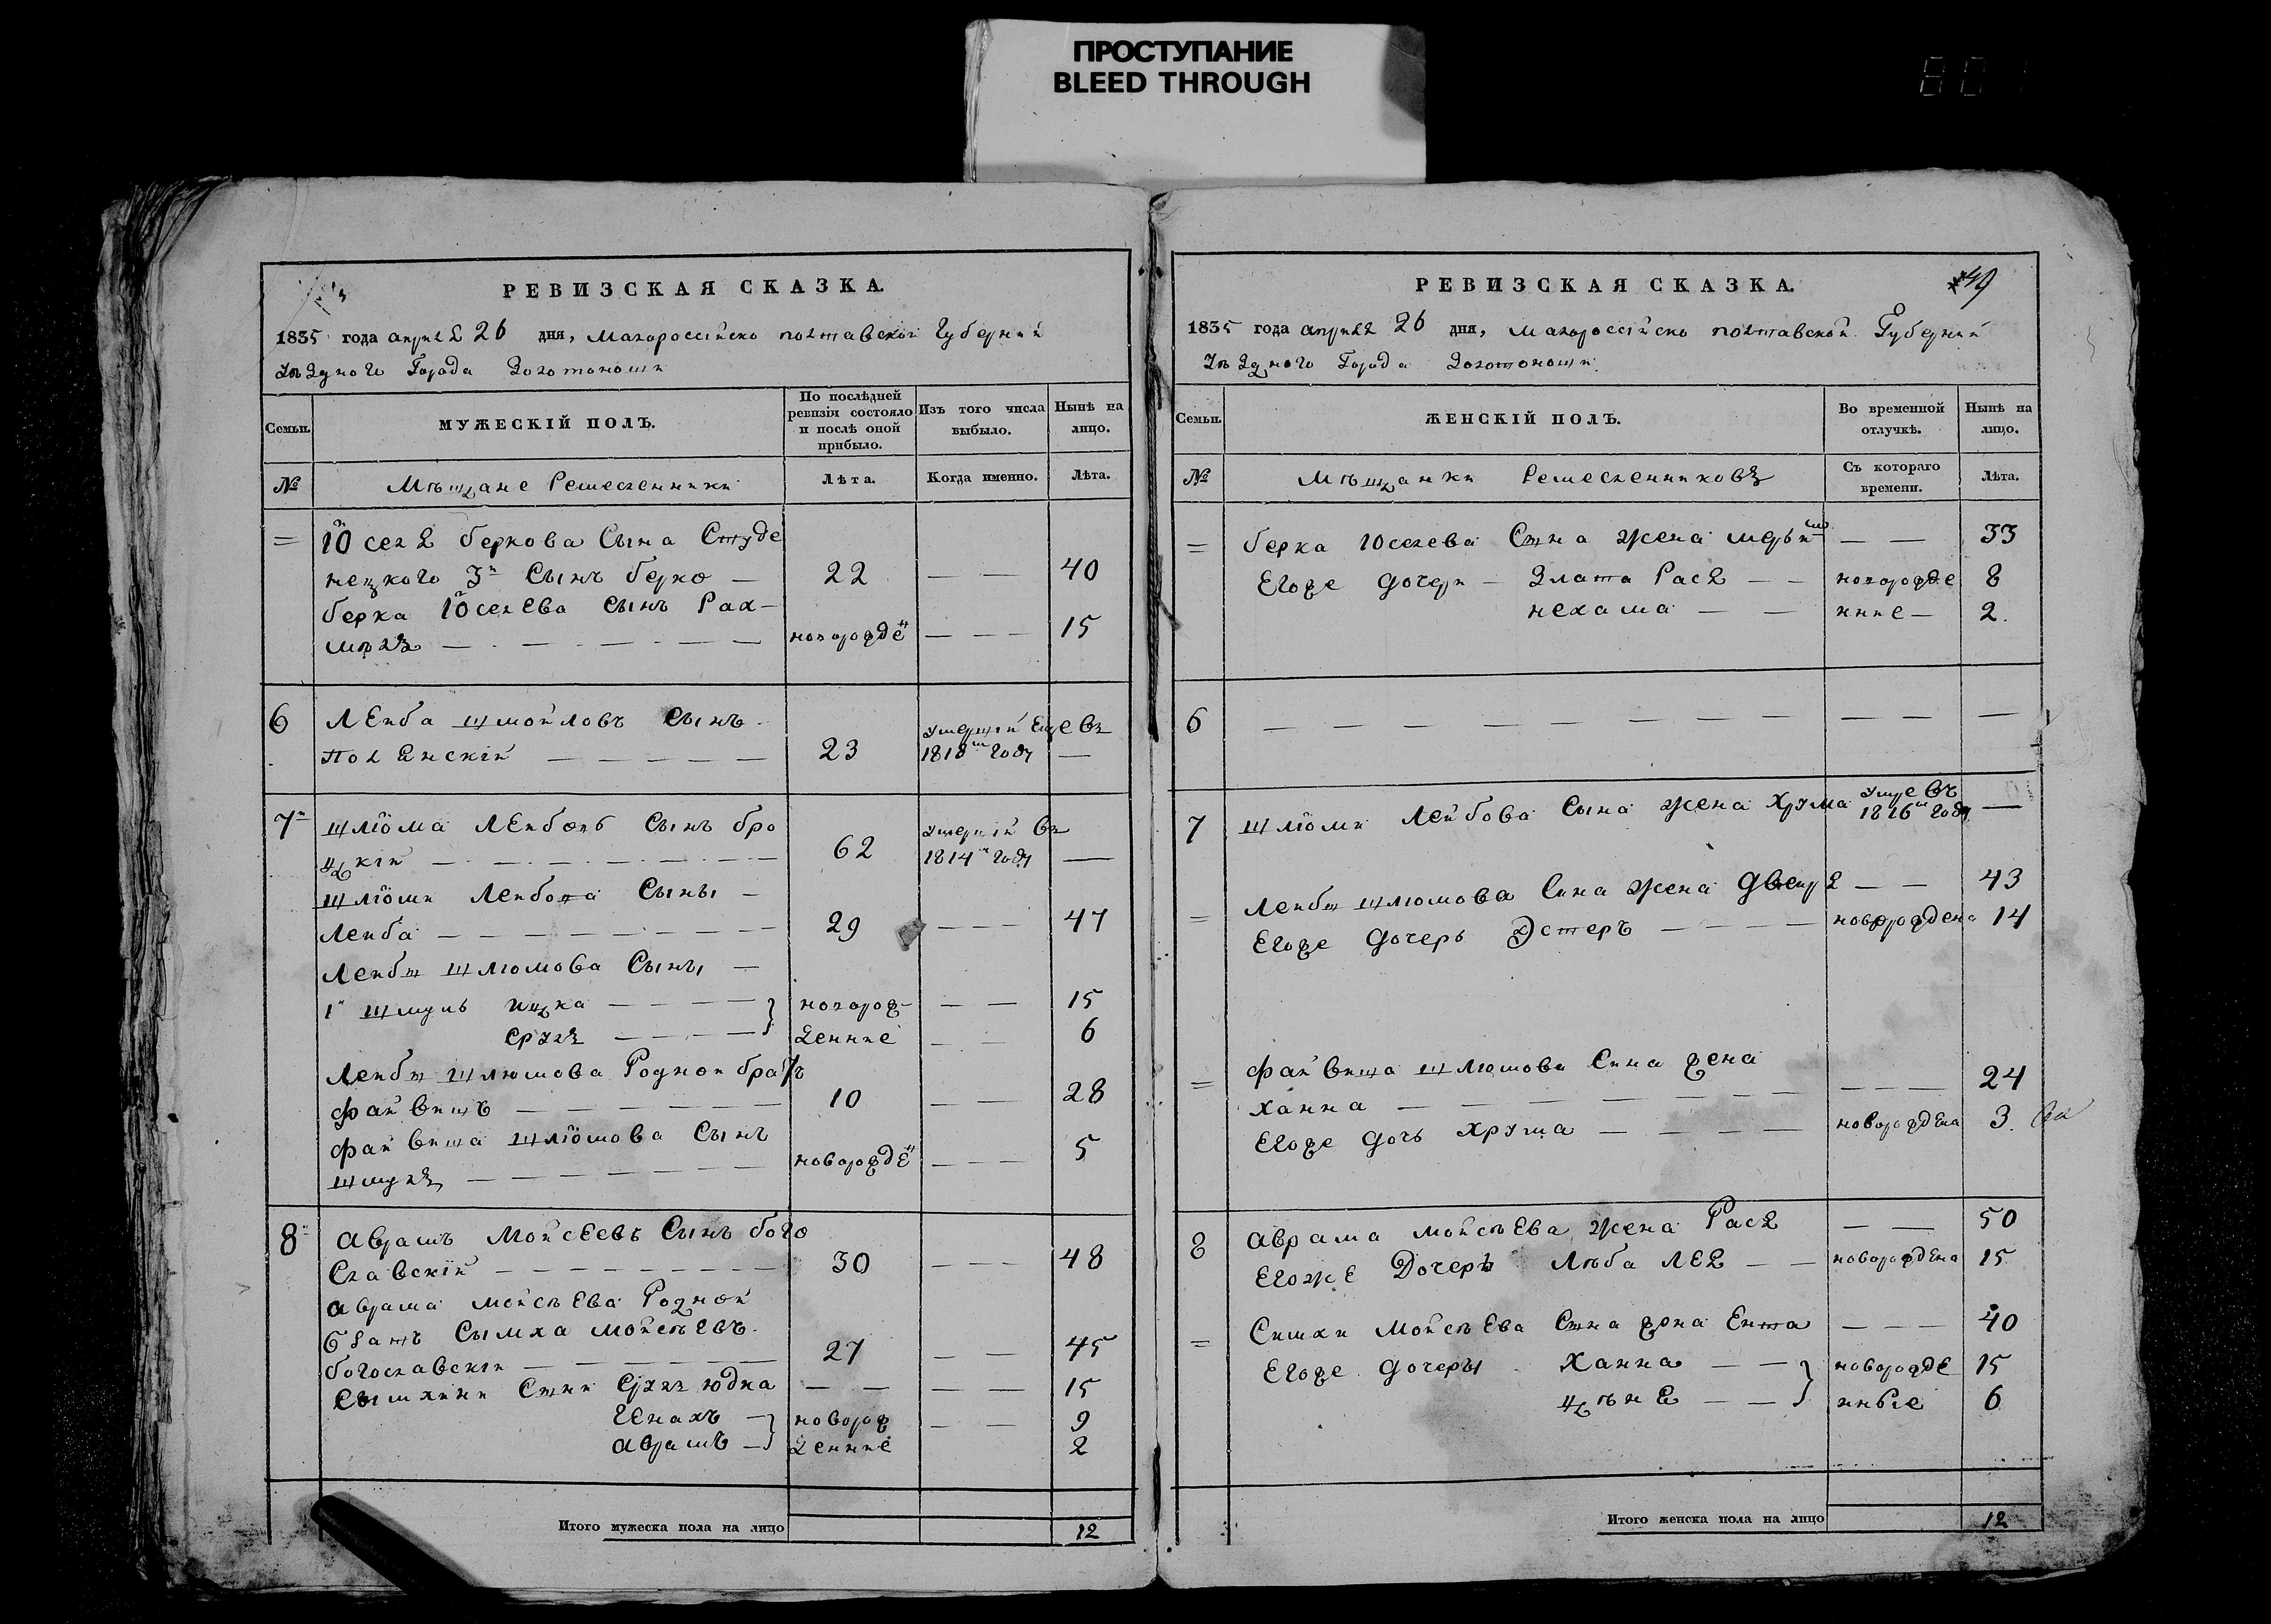 ПРОСТУПАНИЕ
BLEED THROUGH
РЕВИЗСКАЯ СКАЗКА.
1835 года апреля 26 дня, Малороссійско полтавской Губерніи
Уѣзднаго Города Золотоноши
Семьи.
МУЖЕСКІЙ ПОЛЪ.
По послѣдней ревизіи состояло и послѣ оной прибыло.
Изъ того числа выбыло.
Нынѣ на лицо.
№
Мѣщане Ремесленники
Лѣта.
Когда именно.
Лѣта.
= Іосея беркова Сына Студе
нецкого 3й Сынъ берко — 22 — — 40
берка Іосеева сынъ Рах-
мѣлъ — новорожде — — — 15
6 Лейба шмойловъ Сынъ
Полянскій — 23 умершій еще въ 1818м году —
7й шліома Лейбовъ Сынъ бро
цкій — 62 умершій въ 1814м году —
шліоми Лейбова Сыны —
Лейба — 29 — — — 47
Лейбы шлюмова Сыны —
1й шмуль ицка — новорож- — — 15
Срулъ — денние — — 6
Лейбы шлюмова Родной братъ
файвишъ — 10 — — 28
файвиша шліомова Сынъ
шмулъ — новорожде — — — 5
8 аврамъ Мойсеевъ Сынъ бого
Славскій — 30 — — — 48
аврама мойсѣева Родной
братъ Сымха мойсѣевъ
богославскій — 27 — — 45
Сымхини Сыни Срулъ юдка — — — — 15
Генахъ — новорож — — 9
аврамъ — денние 2
Итого мужеска пола на лицо 12
РЕВИЗСКАЯ СКАЗКА.
49
1835 года апреля 26 дня, малороссійско полтавской Губерніи
Уѣзднаго Города Золотоноши
Семьи.
ЖЕНСКІЙ ПОЛЪ.
Во временной отлучкѣ.
Нынѣ на лицо.
№
Мѣщанки Ремесленниковъ
Съ котораго времени.
Лѣта.
= берка Іосеева Сына жена — — 33
Егоже дочери — Злата Рася — — новорожде 8
нехама — — нние — 2.
6 — — — — — — — — — — —
7 шліоми Лейбова Сына жена Хрума умре въ 1826м году —
= Лейбы шлюмова Сина жена двейря — — 43
Егоже дочерь Эстеръ — новорождена 14
= файвиша шлюмови Сина жена
Ханна — — — — 24
Егоже дочь Хрума — новорождена 3.
8 аврама мойсѣева жена Рася — — 50
Егоже Дочерь Лѣба Лея — — новорождена 15
= Симхи Мойсѣева Сына жона Ента — — — 40
Егоже дочеры Ханна — — новорожде 15
цѣня — — нные 6
Итого женска пола на лицо 12